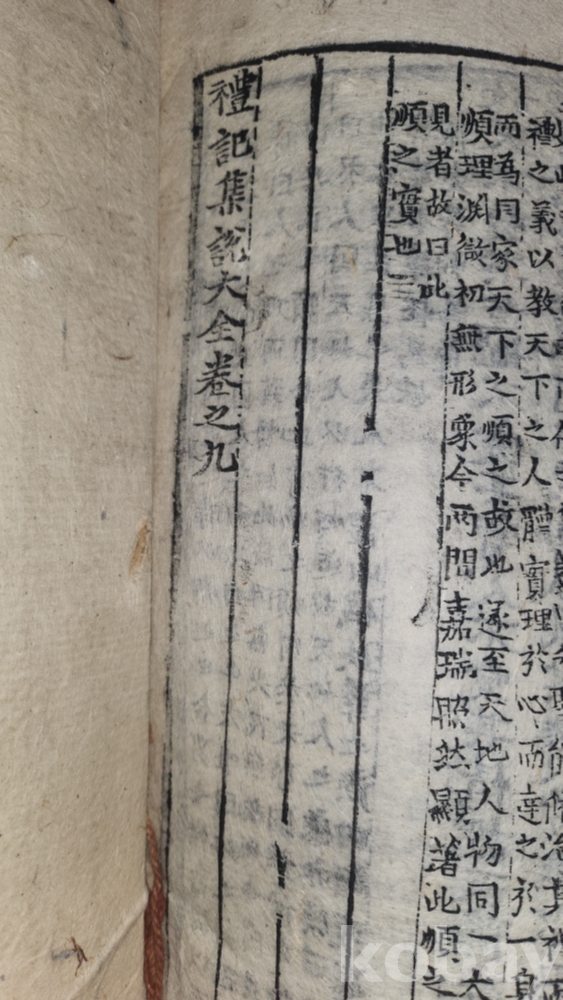 禮之義以教天下之人體實理於心而達之於一身
而為同家天下之順之故也遂至天地人物同一大
順理淵微初無形象今兩間嘉瑞照然顯著此順之
見者故曰此
順之實也
禮記集說大全卷之九
kobay